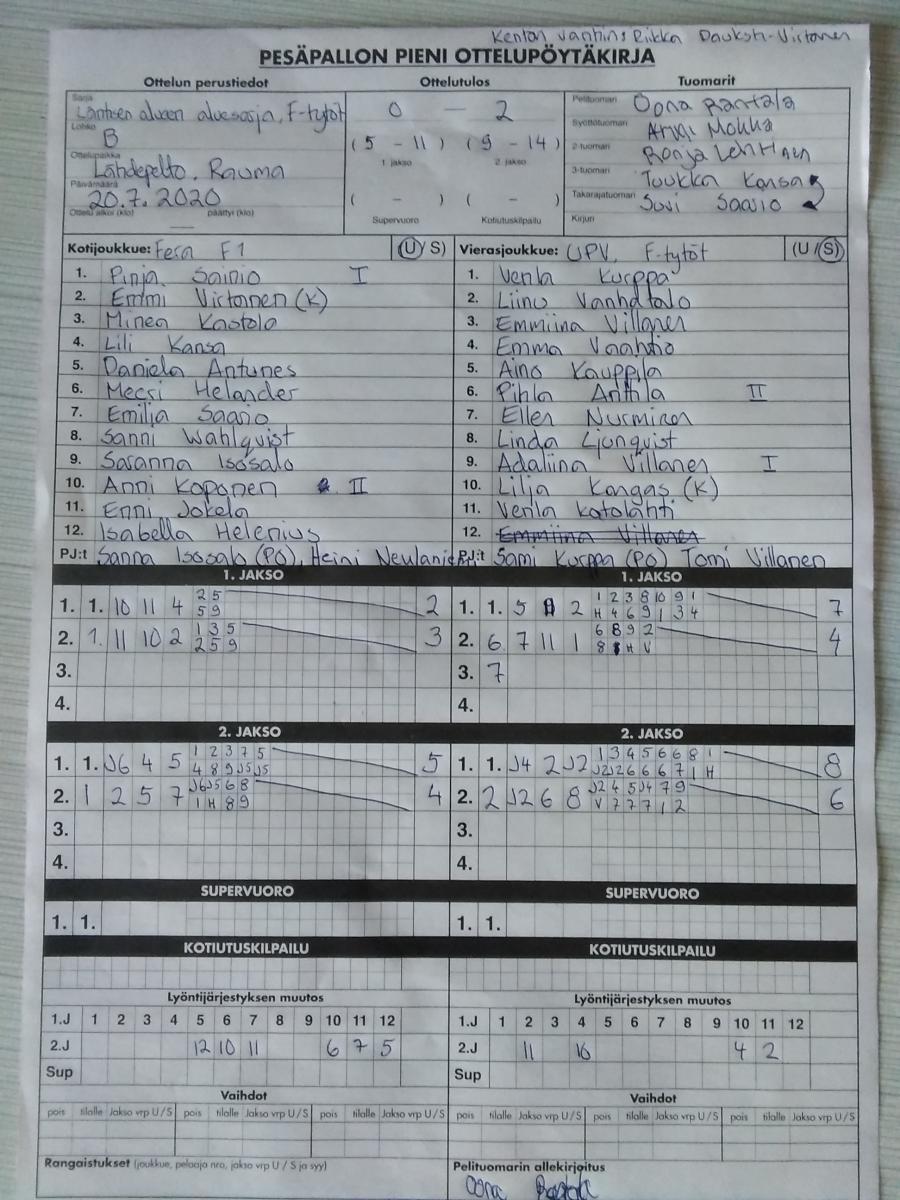 Kentän vanhin: Riikka Dauksh-Virtanen
PESÄPALLON PIENI OTTELUPÖYTÄKIRJA
Ottelun perustiedot Ottelutulos Tuomarit
Sarja Läntisen alueen aluesarja, F-tytöt 0 — 2 Pelituomari Oona Rantala
Lohko B (5 – 11) (9 – 14) Syöttötuomari Arvi Mokka
1. jakso 2. jakso 2-tuomari Ronja Lehtinen
Ottelupaikka Lähdepelto, Rauma 3-tuomari Tuukka Kansa
Päivämäärä 20.7.2020 ( – ) ( – ) Takarajatuomari Suvi Saario
Ottelu alkoi (klo) päättyi (klo) Supervuoro Kotiutuskilpailu Kirjuri
Kotijoukkue: Fera F1 (U/S) Vierasjoukkue: UPV, F-tytöt (U/S)
1. Pinja Sainio I 1. Venla Kurppa
2. Emmi Virtanen (K) 2. Liinu Vanhatalo
3. Minea Kastola 3. Emmiina Villanen
4. Lili Kansa 4. Emma Vaahtio
5. Daniela Antunes 5. Aino Kauppila
6. Meeri Helander 6. Pihla Anttila II
7. Emilia Saario 7. Ellen Nurminen
8. Sanni Wahlquist 8. Linda Ljunqvist
9. Susanna Isosalo 9. Adaliina Villanen I
10. Anni Koponen II 10. Lilja Kangas (K)
11. Enni Jokela 11. Venla Katolahti
12. Isabella Helenius 12. Emmiina Villanen
PJ:t Sanna Isosalo (PO), Heini PJ:t Sami Kurppa (PO) Tomi Villanen
1. JAKSO 1. JAKSO
1. 1. 10 11 4 2 5 2 1. 1. 5 2 1 2 3 8 10 9 1 7
5 9 H 4 6 9 1 3 4
2. 1. 11 10 2 1 3 5 3 2. 6 7 11 1 6 8 9 2 4
2 5 9 8 H V
3. 3. 7
4. 4.
2. JAKSO 2. JAKSO
1. 1. J6 4 5 1 2 3 7 5 5 1. 1. J4 2 J2 1 3 4 5 6 6 8 1 8
4 8 9 J5 J5 J2 J2 6 6 6 7 1 H
2. 1 2 5 7 J6 J5 6 8 4 2. 2 J2 6 8 J2 4 5 J4 7 9 6
1 H 8 9 V 7 7 7 1 2
3. 3.
4. 4.
SUPERVUORO SUPERVUORO
1. 1. 1. 1.
KOTIUTUSKILPAILU KOTIUTUSKILPAILU
Lyöntijärjestyksen muutos Lyöntijärjestyksen muutos
1.J 1 2 3 4 5 6 7 8 9 10 11 12 1.J 1 2 3 4 5 6 7 8 9 10 11 12
2.J 12 10 11 6 7 5 2.J 11 10 4 2
Sup Sup
Vaihdot Vaihdot
pois tilalle Jakso vrp U/S pois tilalle Jakso vrp U/S pois tilalle Jakso vrp U/S pois tilalle Jakso vrp U/S pois tilalle Jakso vrp U/S pois tilalle Jakso vrp U/S
Rangaistukset (joukkue, pelaaja nro, jakso vrp U / S ja syy) Pelituomarin allekirjoitus
Oona Rantala